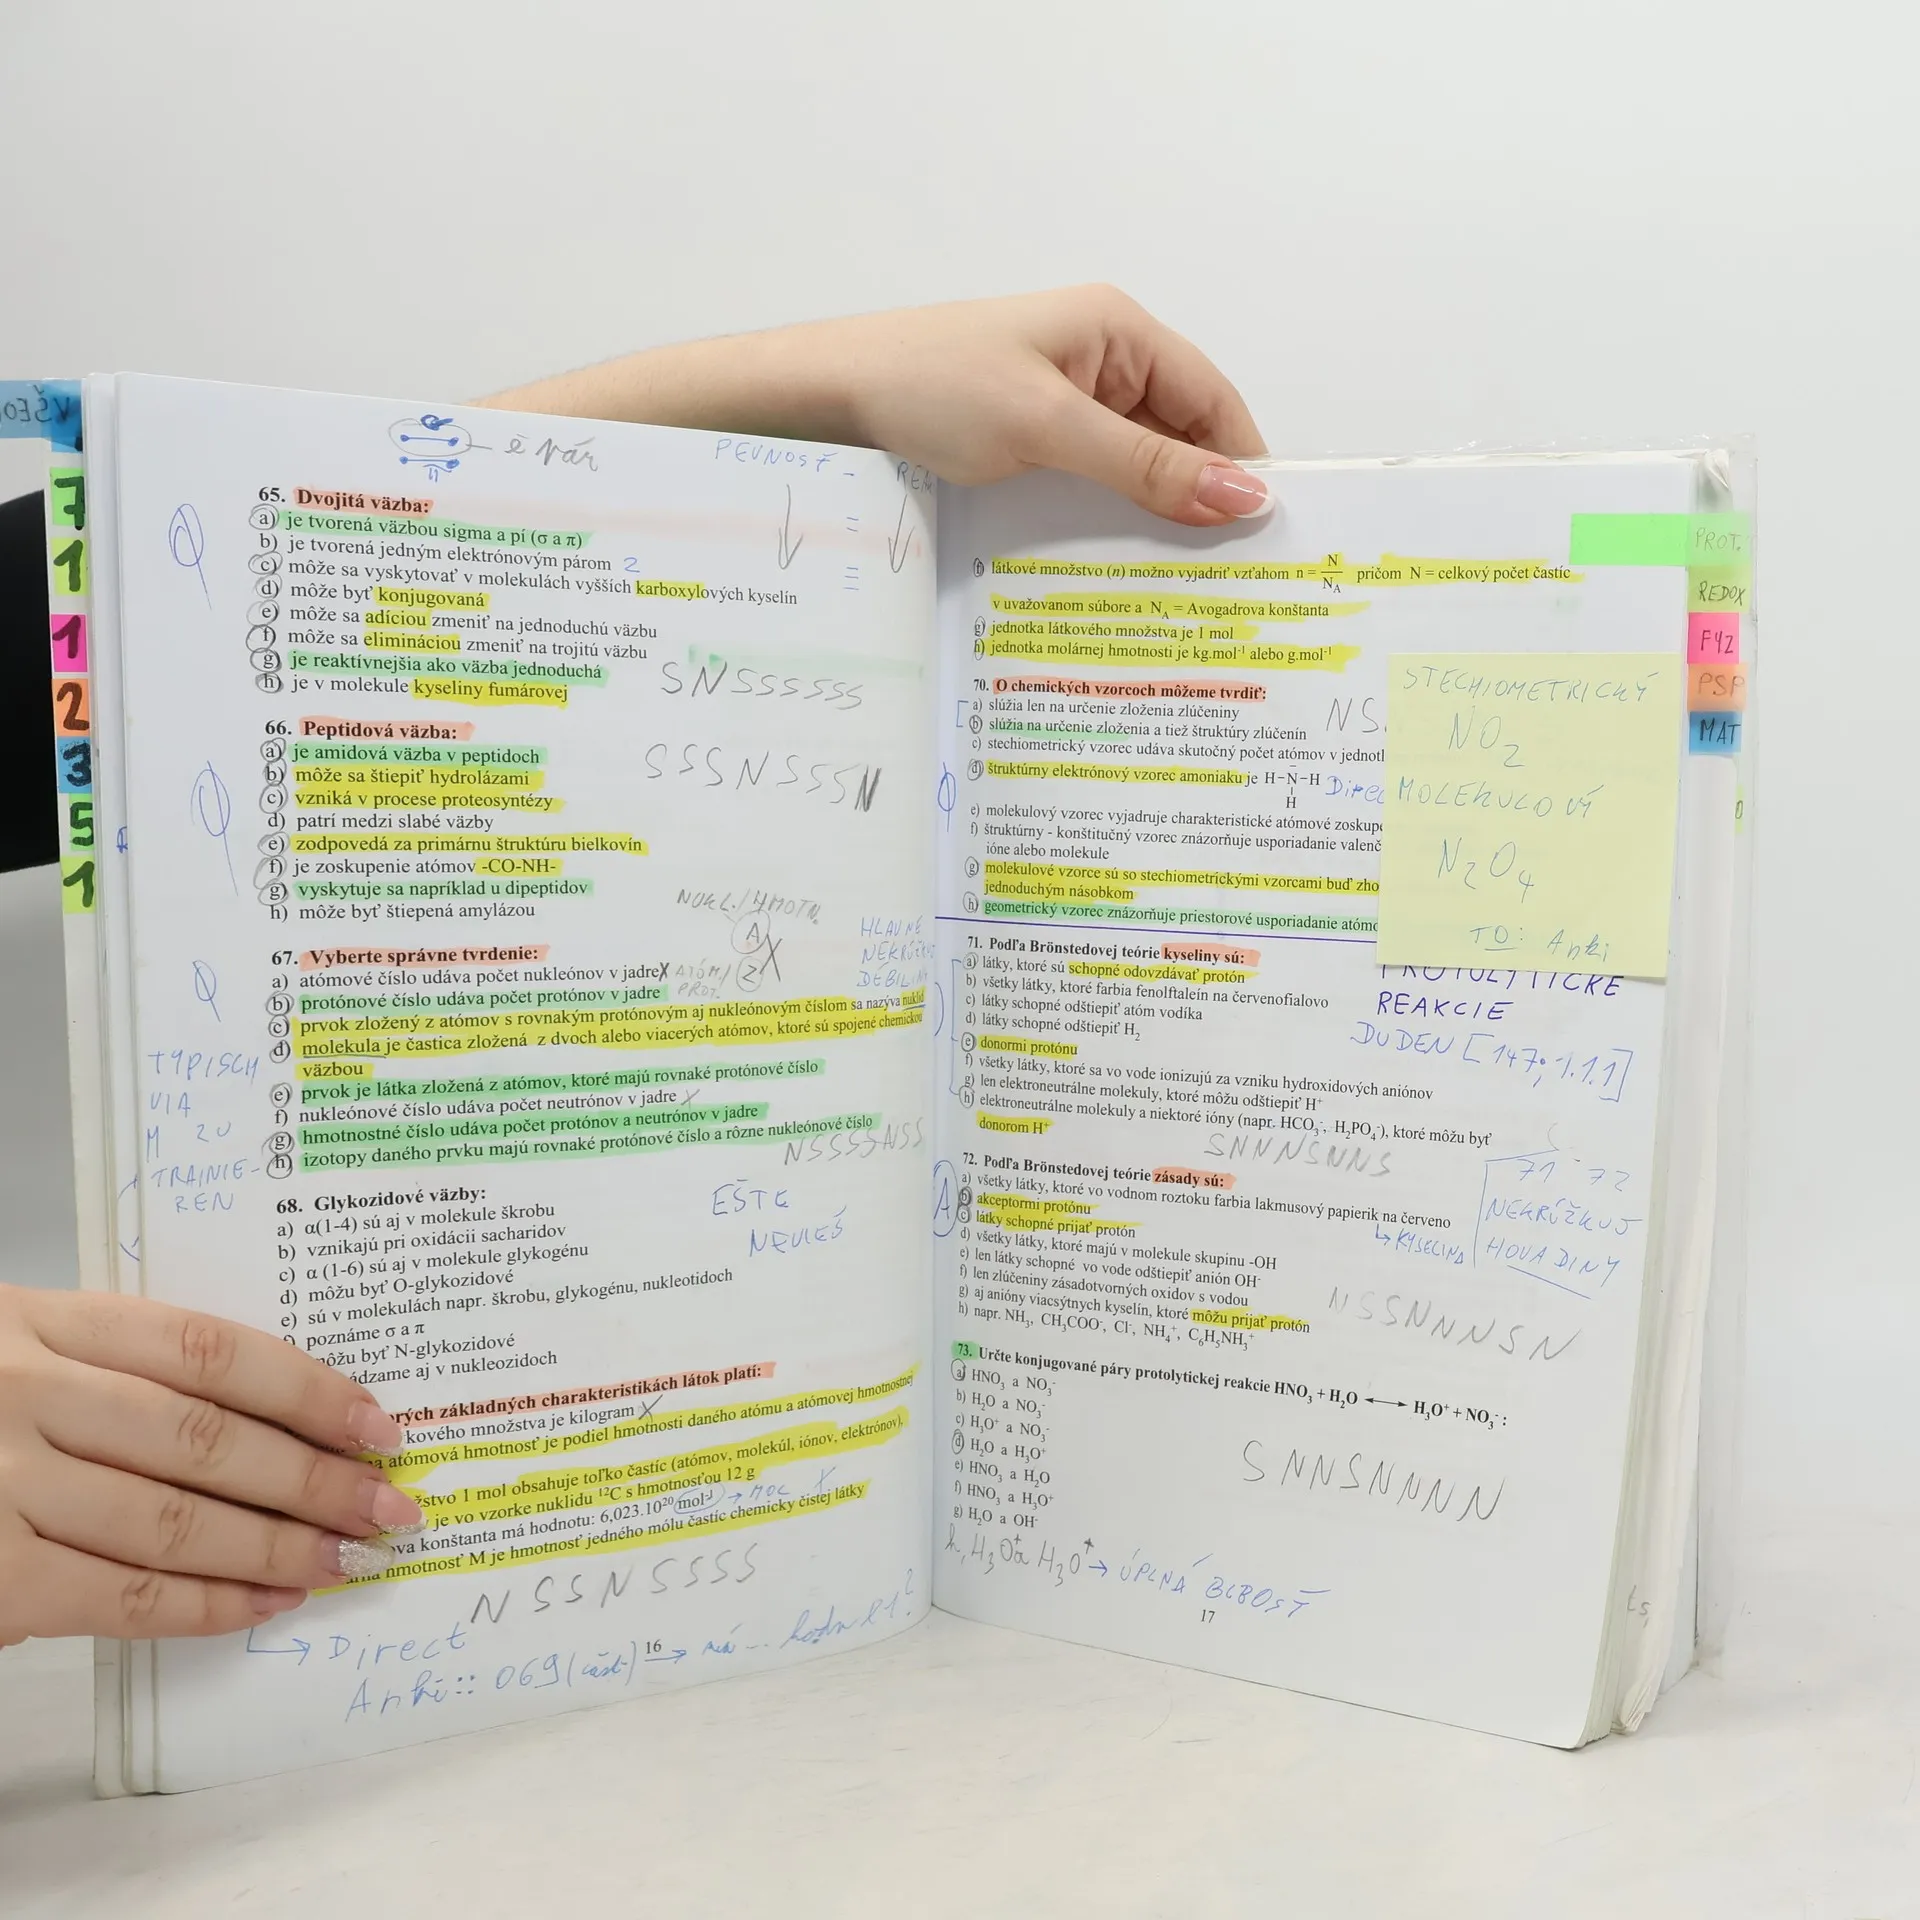 VŠEO
7
1
1
2
3
5
1
PEVNOSŤ -
65. Dvojitá väzba:
a) je tvorená väzbou sigma a pí (σ a π)
b) je tvorená jedným elektrónovým párom 2
c) môže sa vyskytovať v molekulách vyšších karboxylových kyselín
d) môže byť konjugovaná
e) môže sa adíciou zmeniť na jednoduchú väzbu
f) môže sa elimináciou zmeniť na trojitú väzbu
g) je reaktívnejšia ako väzba jednoduchá
h) je v molekule kyseliny fumárovej
SNSSSSSS
66. Peptidová väzba:
a) je amidová väzba v peptidoch
b) môže sa štiepiť hydrolázami
c) vzniká v procese proteosyntézy
d) patrí medzi slabé väzby
e) zodpovedá za primárnu štruktúru bielkovín
f) je zoskupenie atómov -CO-NH-
g) vyskytuje sa napríklad u dipeptidov
h) môže byť štiepená amylázou
SSSNSSSN
NUKL./HMOTN.
A
Z
ATÓM./
PROT.
HLAVNE
67. Vyberte správne tvrdenie:
a) atómové číslo udáva počet nukleónov v jadre
b) protónové číslo udáva počet protónov v jadre
c) prvok zložený z atómov s rovnakým protónovým aj nukleónovým číslom sa nazýva nuklid
d) molekula je častica zložená z dvoch alebo viacerých atómov, ktoré sú spojené chemickou
väzbou
e) prvok je látka zložená z atómov, ktoré majú rovnaké protónové číslo
f) nukleónové číslo udáva počet neutrónov v jadre
g) hmotnostné číslo udáva počet protónov a neutrónov v jadre
h) izotopy daného prvku majú rovnaké protónové číslo a rôzne nukleónové číslo
NSSSSNSS
TYPISCH
VIA
M ZU
TRAINIE-
REN
68. Glykozidové väzby:
a) α(1-4) sú aj v molekule škrobu
b) vznikajú pri oxidácii sacharidov
c) α (1-6) sú aj v molekule glykogénu
d) môžu byť O-glykozidové
e) sú v molekulách napr. škrobu, glykogénu, nukleotidoch
poznáme σ a π
ôžu byť N-glykozidové
ádzame aj v nukleozidoch
EŠTE
NEVIEŠ
orých základných charakteristikách látok platí:
kového množstva je kilogram
atómová hmotnosť je podiel hmotnosti daného atómu a atómovej hmotnostnej
žstvo 1 mol obsahuje toľko častíc (atómov, molekúl, iónov, elektrónov),
je vo vzorke nuklidu ¹²C s hmotnosťou 12 g
ova konštanta má hodnotu: 6,023.10²⁰ mol⁻¹ → MOL
hmotnosť M je hmotnosť jedného mólu častíc chemicky čistej látky
NSSNSSSS
↳ Direct
Anki:: 069 (časť) →
16
f) látkové množstvo (n) možno vyjadriť vzťahom n = N/N_A pričom N = celkový počet častíc
v uvažovanom súbore a N_A = Avogadrova konštanta
g) jednotka látkového množstva je 1 mol
h) jednotka molárnej hmotnosti je kg.mol⁻¹ alebo g.mol⁻¹
70. O chemických vzorcoch môžeme tvrdiť:
a) slúžia len na určenie zloženia zlúčeniny
b) slúžia na určenie zloženia a tiež štruktúry zlúčenín
c) stechiometrický vzorec udáva skutočný počet atómov v jednotl
d) štruktúrny elektrónový vzorec amoniaku je H-N-H
H
e) molekulový vzorec vyjadruje charakteristické atómové zoskup
f) štruktúrny - konštitučný vzorec znázorňuje usporiadanie valenč
ióne alebo molekule
g) molekulové vzorce sú so stechiometrickými vzorcami buď zho
jednoduchým násobkom
h) geometrický vzorec znázorňuje priestorové usporiadanie atómo
NS
Direc
STECHIOMETRICKÝ
NO₂
MOLEKULOVÝ
N₂O₄
TO: Anki
PROTOLYTICKÉ
REAKCIE
DUDEN [147; 1.1.1]
71. Podľa Brönstedovej teórie kyseliny sú:
a) látky, ktoré sú schopné odovzdávať protón
b) všetky látky, ktoré farbia fenolftaleín na červenofialovo
c) látky schopné odštiepiť atóm vodíka
d) látky schopné odštiepiť H₂
e) donormi protónu
f) všetky látky, ktoré sa vo vode ionizujú za vzniku hydroxidových aniónov
g) len elektroneutrálne molekuly, ktoré môžu odštiepiť H⁺
h) elektroneutrálne molekuly a niektoré ióny (napr. HCO₃⁻, H₂PO₄⁻), ktoré môžu byť
donorom H⁺
SNNNSNNS
72. Podľa Brönstedovej teórie zásady sú:
a) všetky látky, ktoré vo vodnom roztoku farbia lakmusový papierik na červeno
b) akceptormi protónu
c) látky schopné prijať protón
d) všetky látky, ktoré majú v molekule skupinu -OH
e) len látky schopné vo vode odštiepiť anión OH⁻
f) len zlúčeniny zásadotvorných oxidov s vodou
g) aj anióny viacsýtnych kyselín, ktoré môžu prijať protón
h) napr. NH₃, CH₃COO⁻, Cl⁻, NH₄⁺, C₆H₅NH₃⁺
↳ KYSELINA
A
71 - 72
NEKRÚŽKUJ
HOVADINY
NSSNNNSN
73. Určte konjugované páry protolytickej reakcie HNO₃ + H₂O ⟷ H₃O⁺ + NO₃⁻ :
a) HNO₃ a NO₃⁻
b) H₂O a NO₃⁻
c) H₃O⁺ a NO₃⁻
d) H₂O a H₃O⁺
e) HNO₃ a H₂O
f) HNO₃ a H₃O⁺
g) H₂O a OH⁻
h, H₃O⁺ a H₃O⁺ → ÚPLNÁ BLBOSŤ
SNNSNNNN
17
PROT.
REDOX
FYZ
PSP
MAT